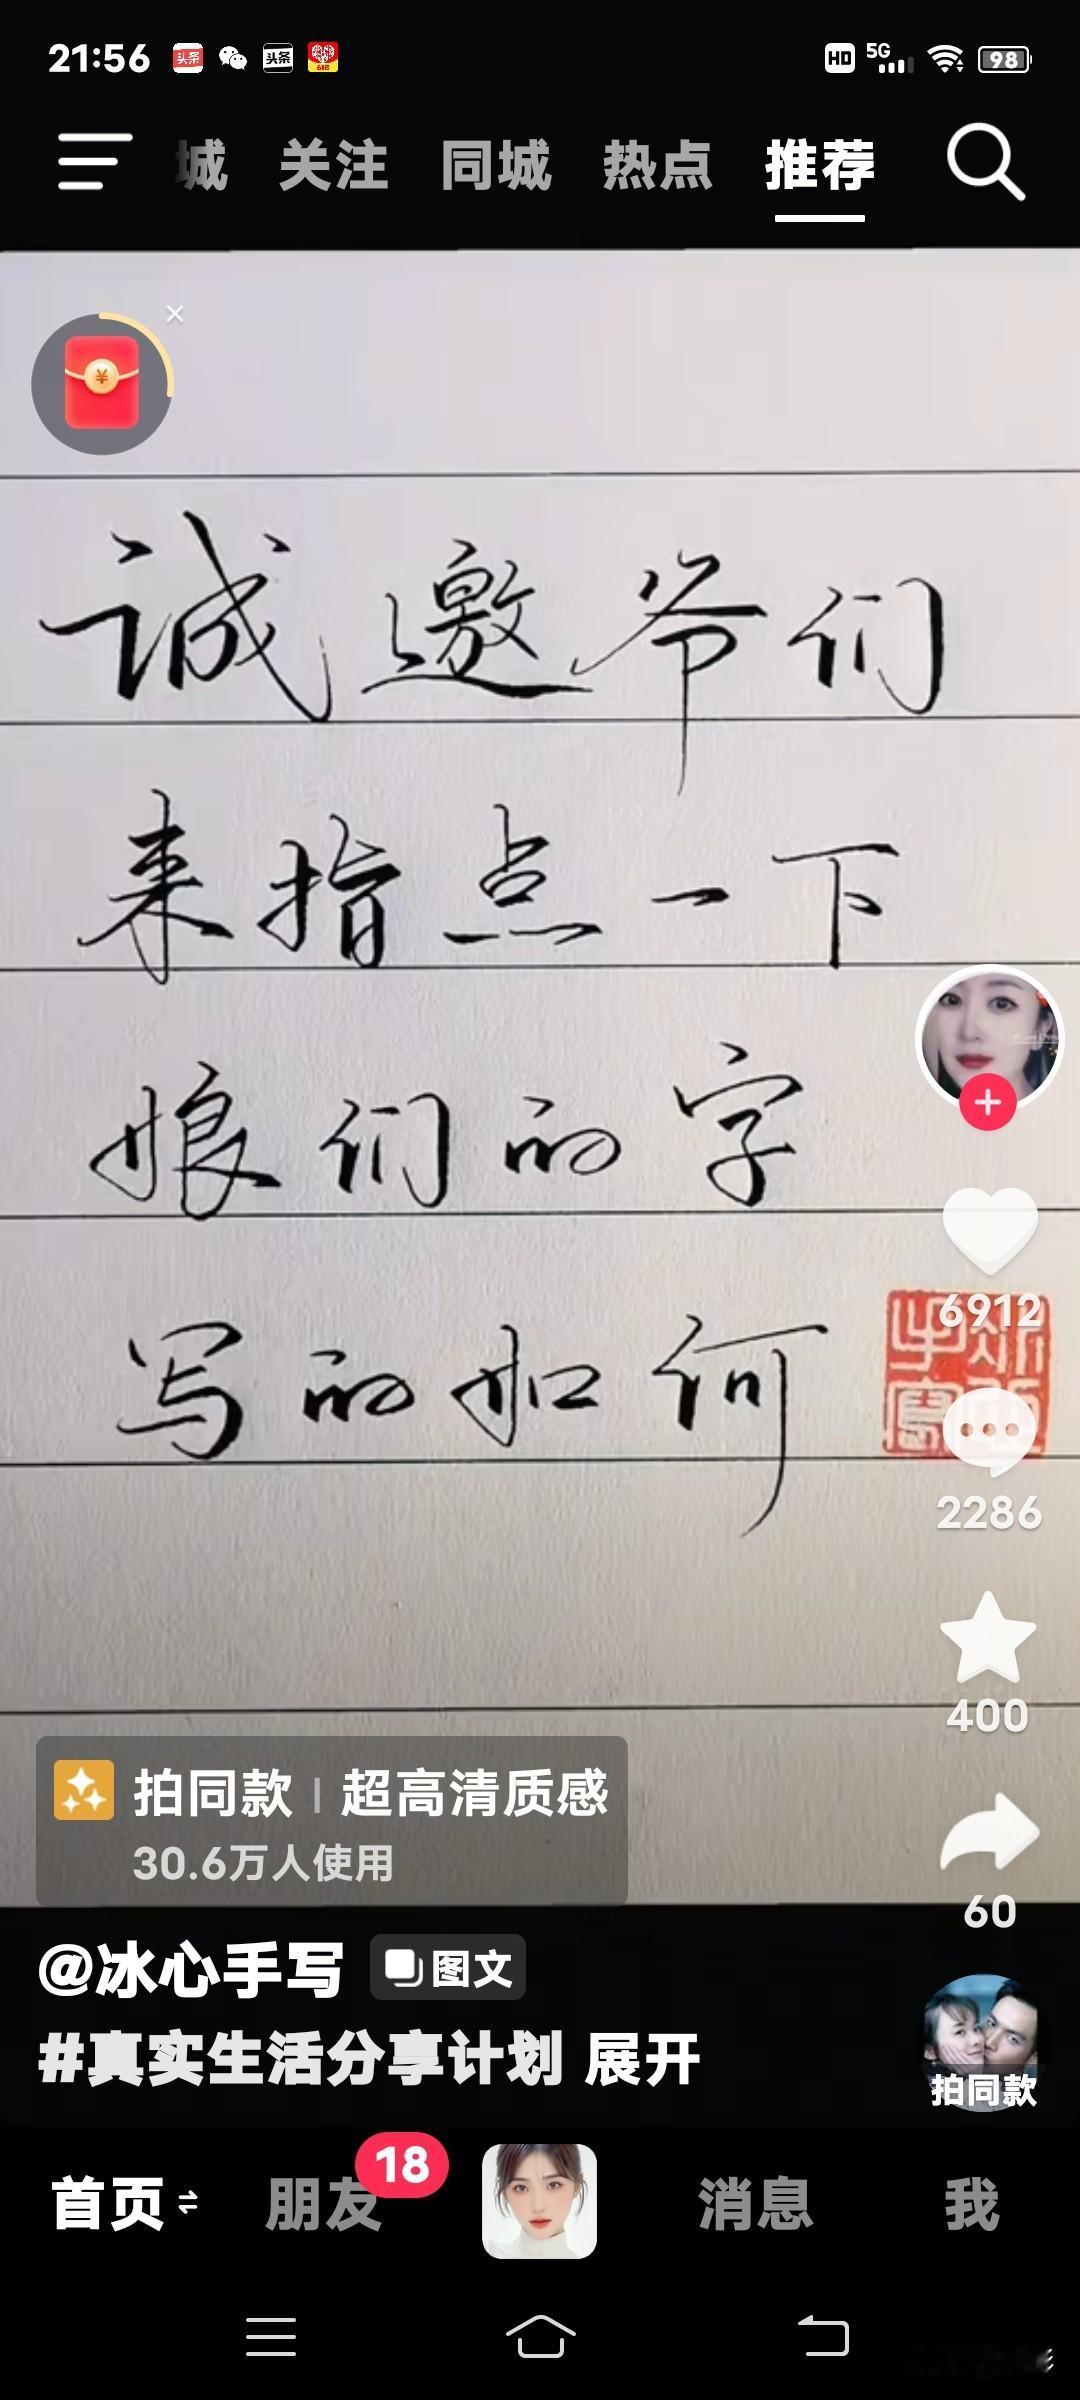 21:56 头条 头条 618 HD 5G 98
城 关注 同城 热点 推荐
¥
诚邀爷们
来指点一下
娘们的字
写的如何
6912
2286
400
60
拍同款 | 超高清质感
30.6万人使用
@冰心手写 图文
#真实生活分享计划 展开
拍同款
首页 朋友 18 消息 我